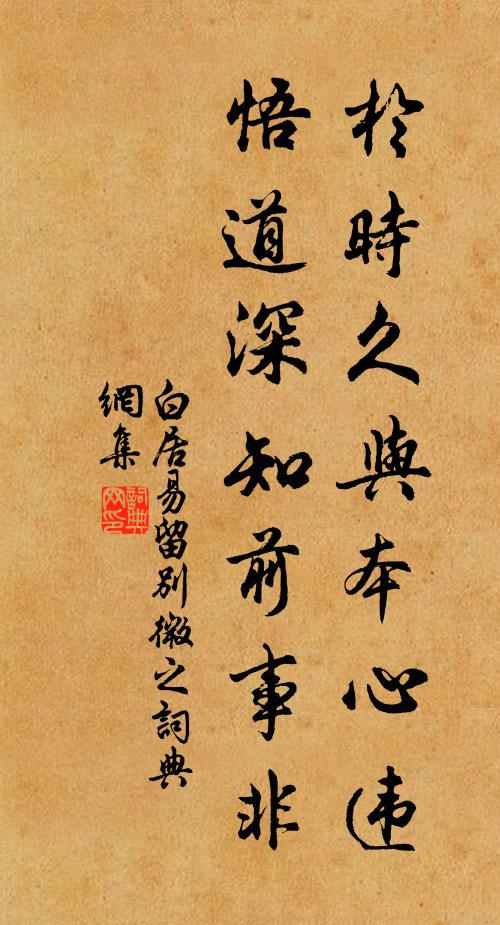 於時久與本心违
悟道深知前事非
白居易留別微之詞典
網集
詞典
网印